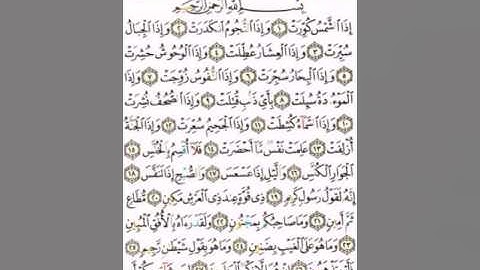 بِسْمِ ٱللَّهِ ٱلرَّحْمَٰنِ ٱلرَّحِيمِ
إِذَا ٱلشَّمْسُ كُوِّرَتْ ١ وَإِذَا ٱلنُّجُومُ ٱنكَدَرَتْ ٢ وَإِذَا ٱلْجِبَالُ
سُيِّرَتْ ٣ وَإِذَا ٱلْعِشَارُ عُطِّلَتْ ٤ وَإِذَا ٱلْوُحُوشُ حُشِرَتْ
٥ وَإِذَا ٱلْبِحَارُ سُجِّرَتْ ٦ وَإِذَا ٱلنُّفُوسُ زُوِّجَتْ ٧ وَإِذَا
ٱلْمَوْءُۥدَةُ سُئِلَتْ ٨ بِأَىِّ ذَنۢبٍ قُتِلَتْ ٩ وَإِذَا ٱلصُّحُفُ نُشِرَتْ
١٠ وَإِذَا ٱلسَّمَآءُ كُشِطَتْ ١١ وَإِذَا ٱلْجَحِيمُ سُعِّرَتْ ١٢ وَإِذَا ٱلْجَنَّةُ
أُزْلِفَتْ ١٣ عَلِمَتْ نَفْسٌ مَّآ أَحْضَرَتْ ١٤ فَلَآ أُقْسِمُ بِٱلْخُنَّسِ ١٥
ٱلْجَوَارِ ٱلْكُنَّسِ ١٦ وَٱلَّيْلِ إِذَا عَسْعَسَ ١٧ وَٱلصُّبْحِ إِذَا تَنَفَّسَ ١٨
إِنَّهُۥ لَقَوْلُ رَسُولٍ كَرِيمٍ ١٩ ذِى قُوَّةٍ عِندَ ذِى ٱلْعَرْشِ مَكِينٍ ٢٠ مُّطَاعٍ
ثَمَّ أَمِينٍ ٢١ وَمَا صَاحِبُكُم بِمَجْنُونٍ ٢٢ وَلَقَدْ رَءَاهُ بِٱلْأُفُقِ ٱلْمُبِينِ
٢٣ وَمَا هُوَ عَلَى ٱلْغَيْبِ بِضَنِينٍ ٢٤ وَمَا هُوَ بِقَوْلِ شَيْطَٰنٍ رَّجِيمٍ ٢٥